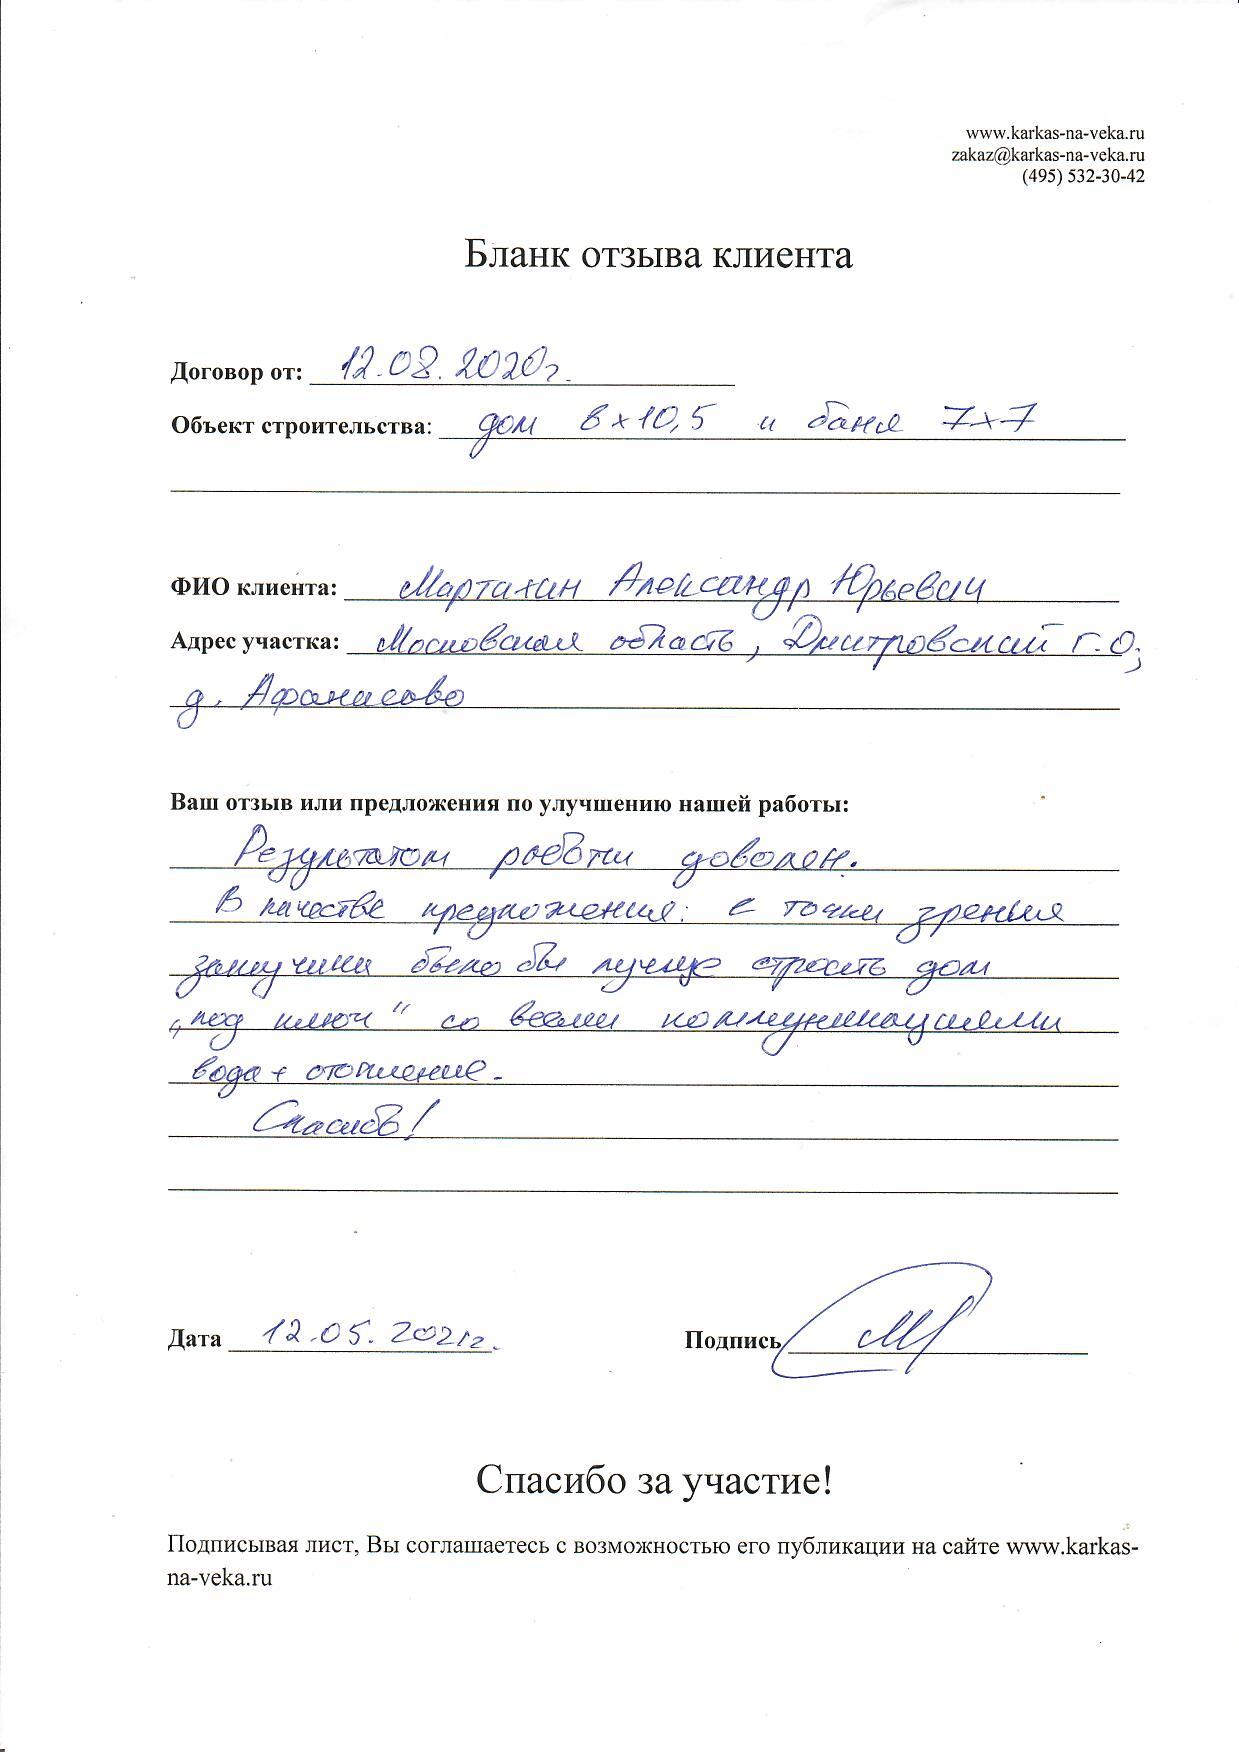 www.karkas-na-veka.ru
zakaz@karkas-na-veka.ru
(495) 532-30-42
Бланк отзыва клиента
Договор от: 12.08.2020г.
Объект строительства: дом 8х10,5 и баня 7х7
ФИО клиента: Александр Юрьевич
Адрес участка: Московская область, Дмитровский г.о,
д. Афанасово
Ваш отзыв или предложения по улучшению нашей работы:
Результатом работы доволен.
В качестве предложения: с точки зрения
было бы лучше строить дом
„под ключ“ со всеми коммуникациями
вода + отопление.
Спасибо!
Дата 12.05.2021г.
Подпись
Спасибо за участие!
Подписывая лист, Вы соглашаетесь с возможностью его публикации на сайте www.karkas-
na-veka.ru